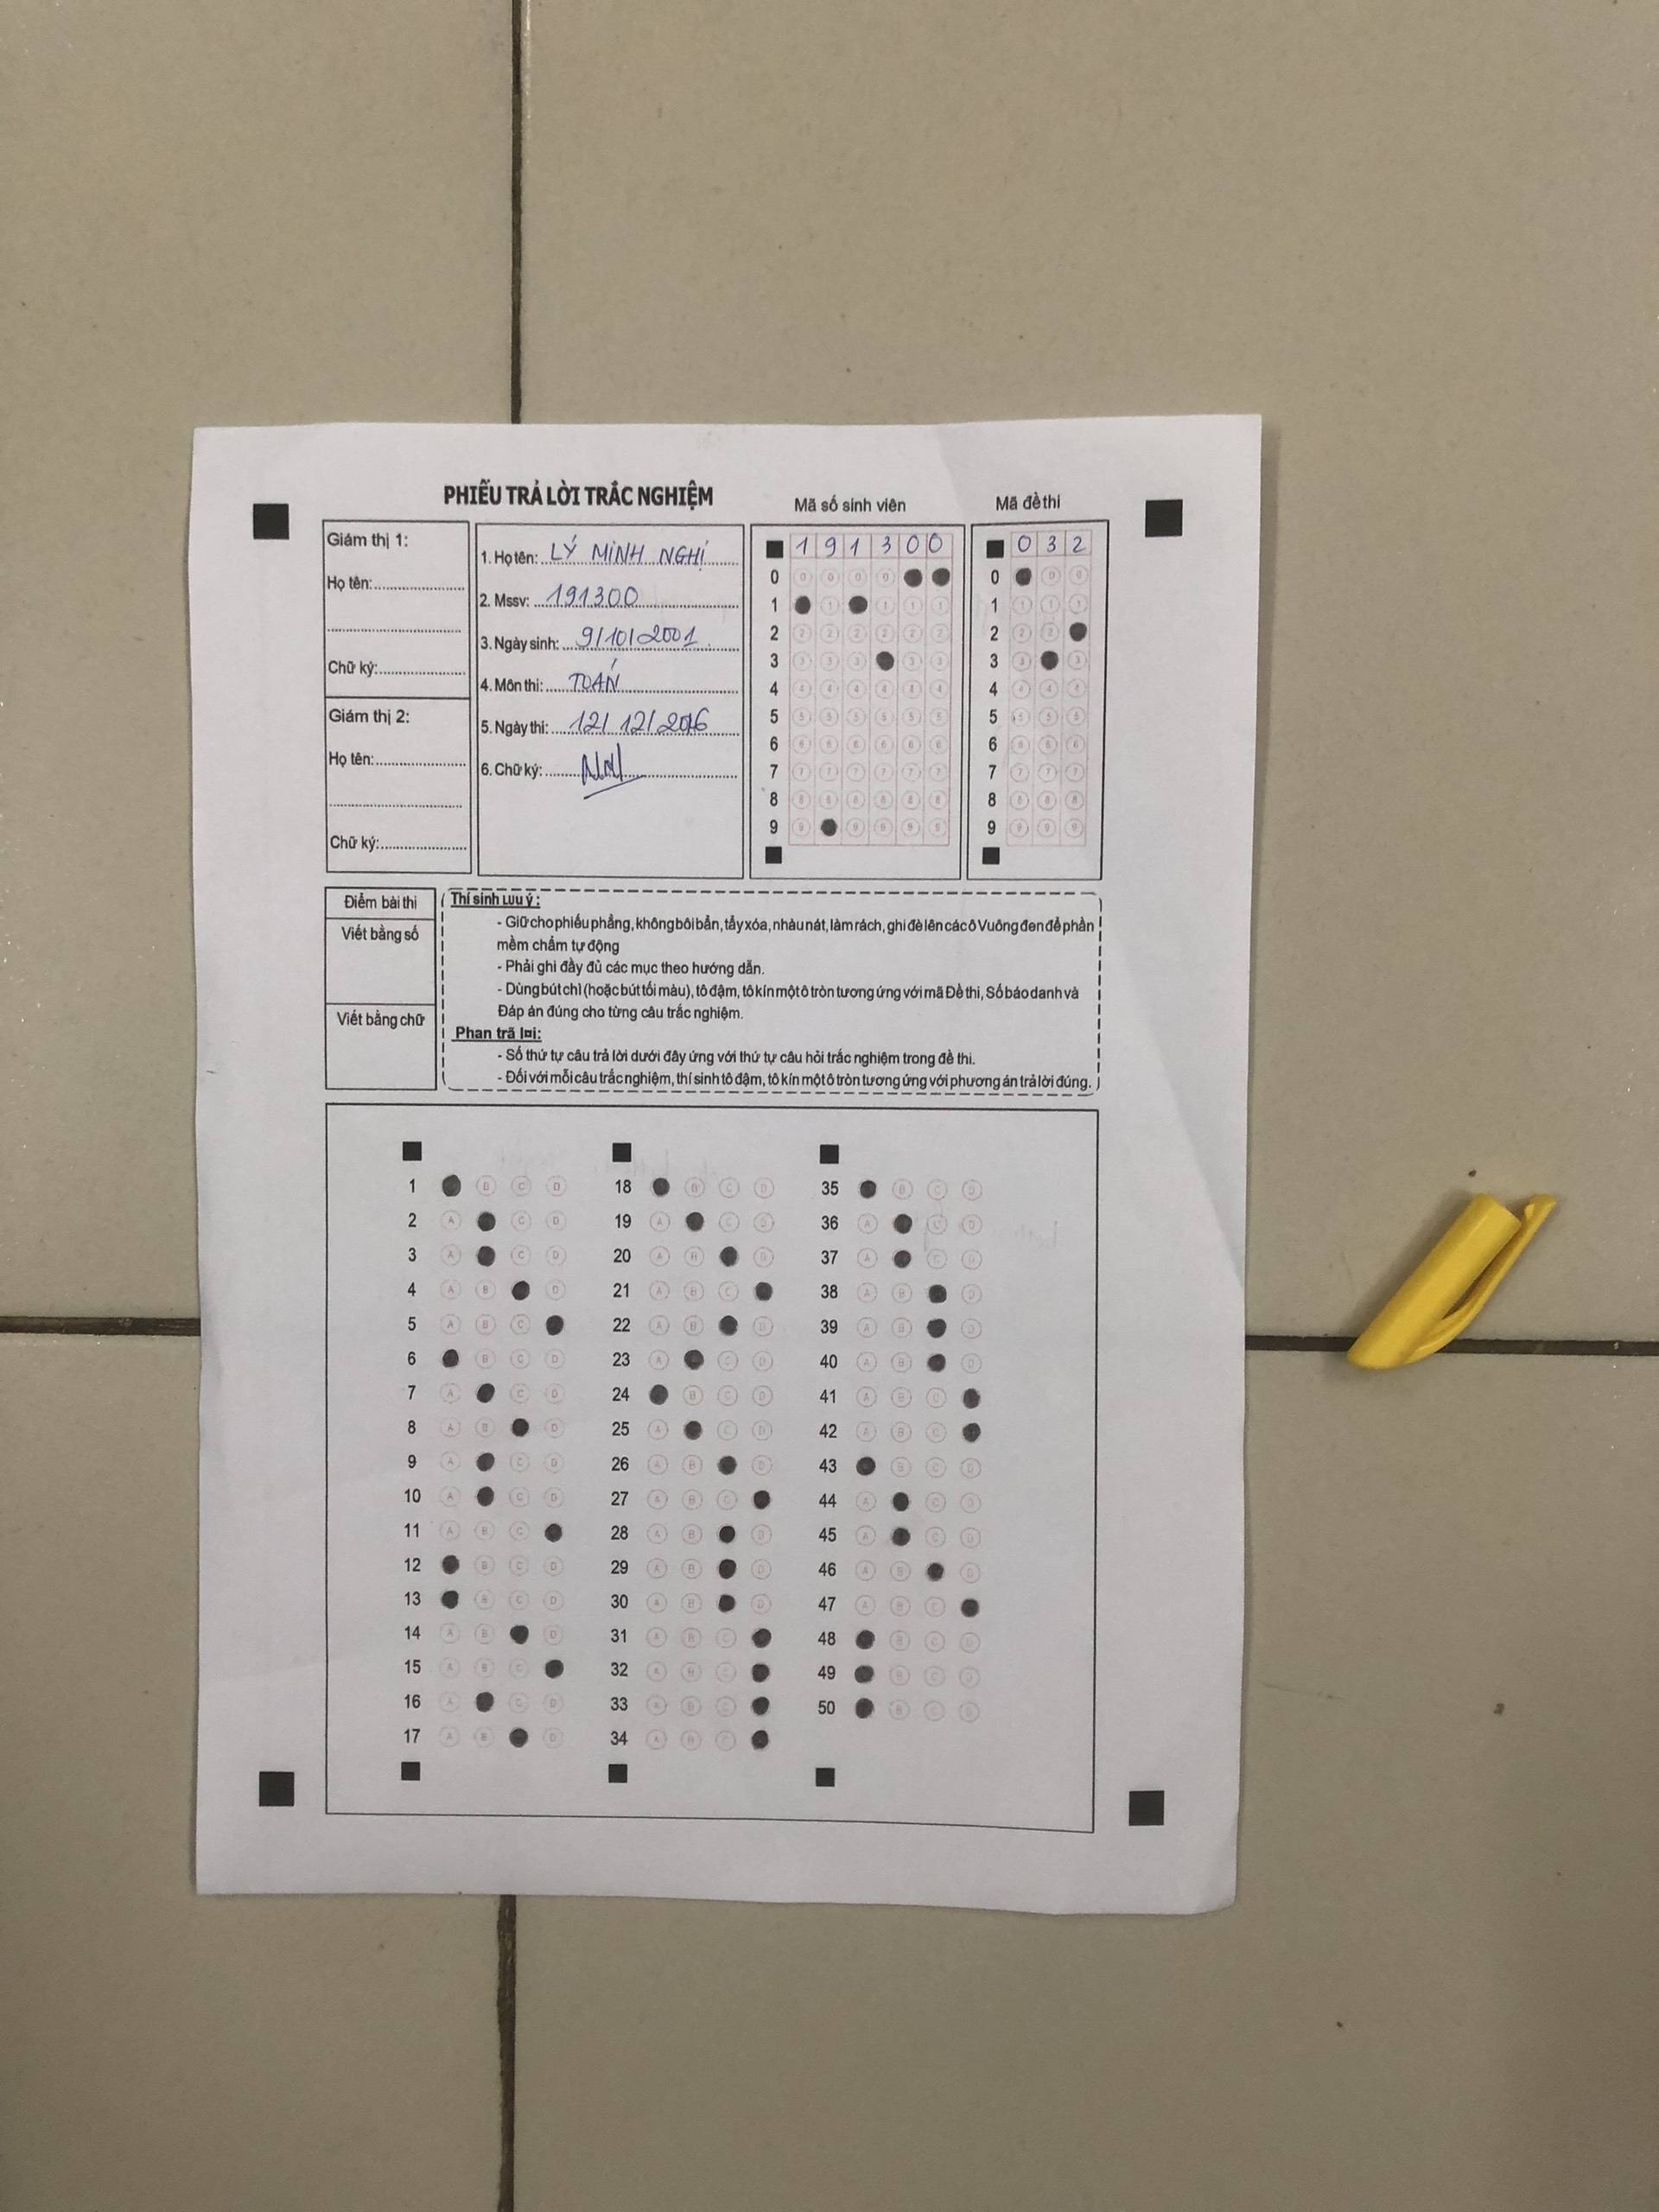 PHIẾU TRẢ LỜI TRẮC NGHIỆM
Mã số sinh viên
Mã đề thi
Giám thị 1:
Họ tên:
Chữ ký:
Giám thị 2:
Họ tên:
Chữ ký:
1. Họ tên: LÝ MINH NGHỊ
2. Mssv: 191300
3. Ngày sinh: 9/10/2001
4. Môn thi: TOÁN
5. Ngày thi: 12/12/2016
6. Chữ ký:
1 9 1 3 0 0
0 3 2
0 0
1 1
2 2
3 3
4 4
5 5
6 6
7 7
8 8
9 9
Điểm bài thi
Viết bằng số
Viết bằng chữ
Thí sinh Lưu ý:
- Giữ cho phiếu phẳng, không bôi bẩn, tẩy xóa, nhàu nát, làm rách, ghi đè lên các ô Vuông đen để phần
mềm chấm tự động
- Phải ghi đầy đủ các mục theo hướng dẫn.
- Dùng bút chì (hoặc bút tối màu), tô đậm, tô kín một ô tròn tương ứng với mã Đề thi, Số báo danh và
Đáp án đúng cho từng câu trắc nghiệm.
Phan trã lại:
- Số thứ tự câu trả lời dưới đây ứng với thứ tự câu hỏi trắc nghiệm trong đề thi.
- Đối với mỗi câu trắc nghiệm, thí sinh tô đậm, tô kín một ô tròn tương ứng với phương án trả lời đúng.
1 B C D
2 A C D
3 A C D
4 A B D
5 A B C
6 B C D
7 A C D
8 A B D
9 A C D
10 A C D
11 A B C
12 B C D
13 B C D
14 A B D
15 A B C
16 A C D
17 A B D
18 B C D
19 A C D
20 A B D
21 A B C
22 A B D
23 A C D
24 B C D
25 A C D
26 A B D
27 A B C
28 A B D
29 A B D
30 A B D
31 A B C
32 A B C
33 A B C
34 A B C
35 B C D
36 A C D
37 A C D
38 A B D
39 A B D
40 A B D
41 A B C
42 A B C
43 B C D
44 A C D
45 A C D
46 A B D
47 A B C
48 B C D
49 B C D
50 B C D